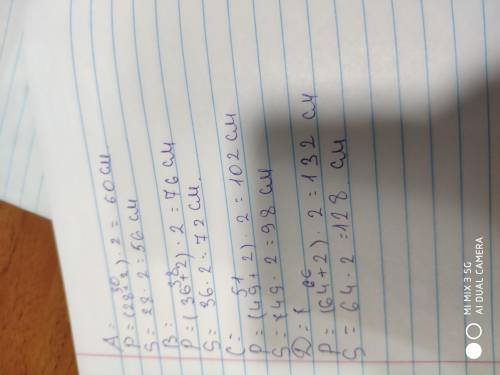 A =
30
P = (28+2) · 2 = 60 см
S = 28 · 2 = 56 см
B =
38
P = (36+2) · 2 = 76 см
S = 36 · 2 = 72 см.
C =
51
P = (49+2) · 2 = 102 см
S = 49 · 2 = 98 см
D =
66
P = (64+2) · 2 = 132 см
S = 64 · 2 = 128 см
MI MIX 3 5G
AI DUAL CAMERA